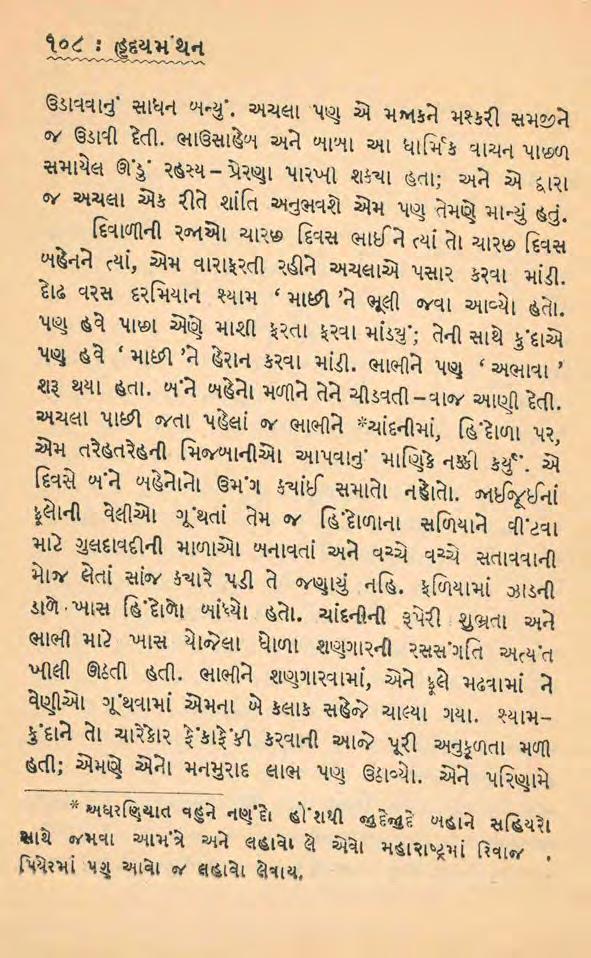 ૧૦૮ : હૃદયમંથન
ઉડાવવાનું સાધન બન્યું. અચલા પણ એ મજાકને મશ્કરી સમજીને
જ ઉડાવી દેતી. ભાઉસાહેબ અને બાબા આ ધાર્મિક વાચન પાછળ
સમાયેલ ઊંડું રહસ્ય – પ્રેરણા પારખી શક્યા હતા; અને એ દ્વારા
જ અચલા એક રીતે શાંતિ અનુભવશે એમ પણ તેમણે માન્યું હતું.
દિવાળીની રજાઓ ચારછ દિવસ ભાઈને ત્યાં તો ચારછ દિવસ
બહેનને ત્યાં, એમ વારાફરતી રહીને અચલાએ પસાર કરવા માંડી.
દોઢ વરસ દરમિયાન શ્યામ ‘ માછી ’ને ભૂલી જવા આવ્યો હતો.
પણ હવે પાછા એણે માશી ફરતા ફરવા માંડ્યું; તેની સાથે કુંદાએ
પણ હવે ‘ માછી ’ને હેરાન કરવા માંડી. ભાભીને પણ ‘ અભાવા ’
શરૂ થયા હતા. બંને બહેનો મળીને તેને ચીડવતી – વાજ આણી દેતી.
અચલા પાછી જતા પહેલાં જ ભાભીને *ચાંદનીમાં, હિંદોળા પર,
એમ તરેહતરેહની મિજબાનીઓ આપવાનું માણિકે નક્કી કર્યું. એ
દિવસે બંને બહેનોનો ઉમંગ ક્યાંઈ સમાતો નહોતો. જાઈજૂઈનાં
ફૂલોની વેલીઓ ગૂંથતાં તેમ જ હિંદોળાના સળિયાને વીંટવા
માટે ગુલદાવદીની માળાઓ બનાવતાં અને વચ્ચે વચ્ચે સતાવવાની
મોજ લેતાં સાંજ ક્યારે પડી તે જણાયું નહિ. ફળિયામાં ઝાડની
ડાળે ખાસ હિંદોળો બાંધ્યો હતો. ચાંદનીની રૂપેરી શુભ્રતા અને
ભાભી માટે ખાસ યોજેલા ધોળા શણગારની રસસંગતિ અત્યંત
ખીલી ઊઠતી હતી. ભાભીને શણગારવામાં, એને ફૂલે મઢવામાં ને
વેણીઓ ગૂંથવામાં એમના બે કલાક સહેજે ચાલ્યા ગયા. શ્યામ–
કુંદાને તો ચારેકોર ફેંકાફેંકી કરવાની આજે પૂરી અનુકૂળતા મળી
હતી; એમણે એનો મનમુરાદ લાભ પણ ઉઠાવ્યો. એને પરિણામે
* અઘરણિયાત વહુને નણંદો હોંશથી જુદેજુદે બહાને સહિયરો
સાથે જમવા આમંત્રે અને લહાવો લે એવો મહારાષ્ટ્રમાં રિવાજ .
પિયેરમાં પણ આવો જ લહાવો લેવાય.